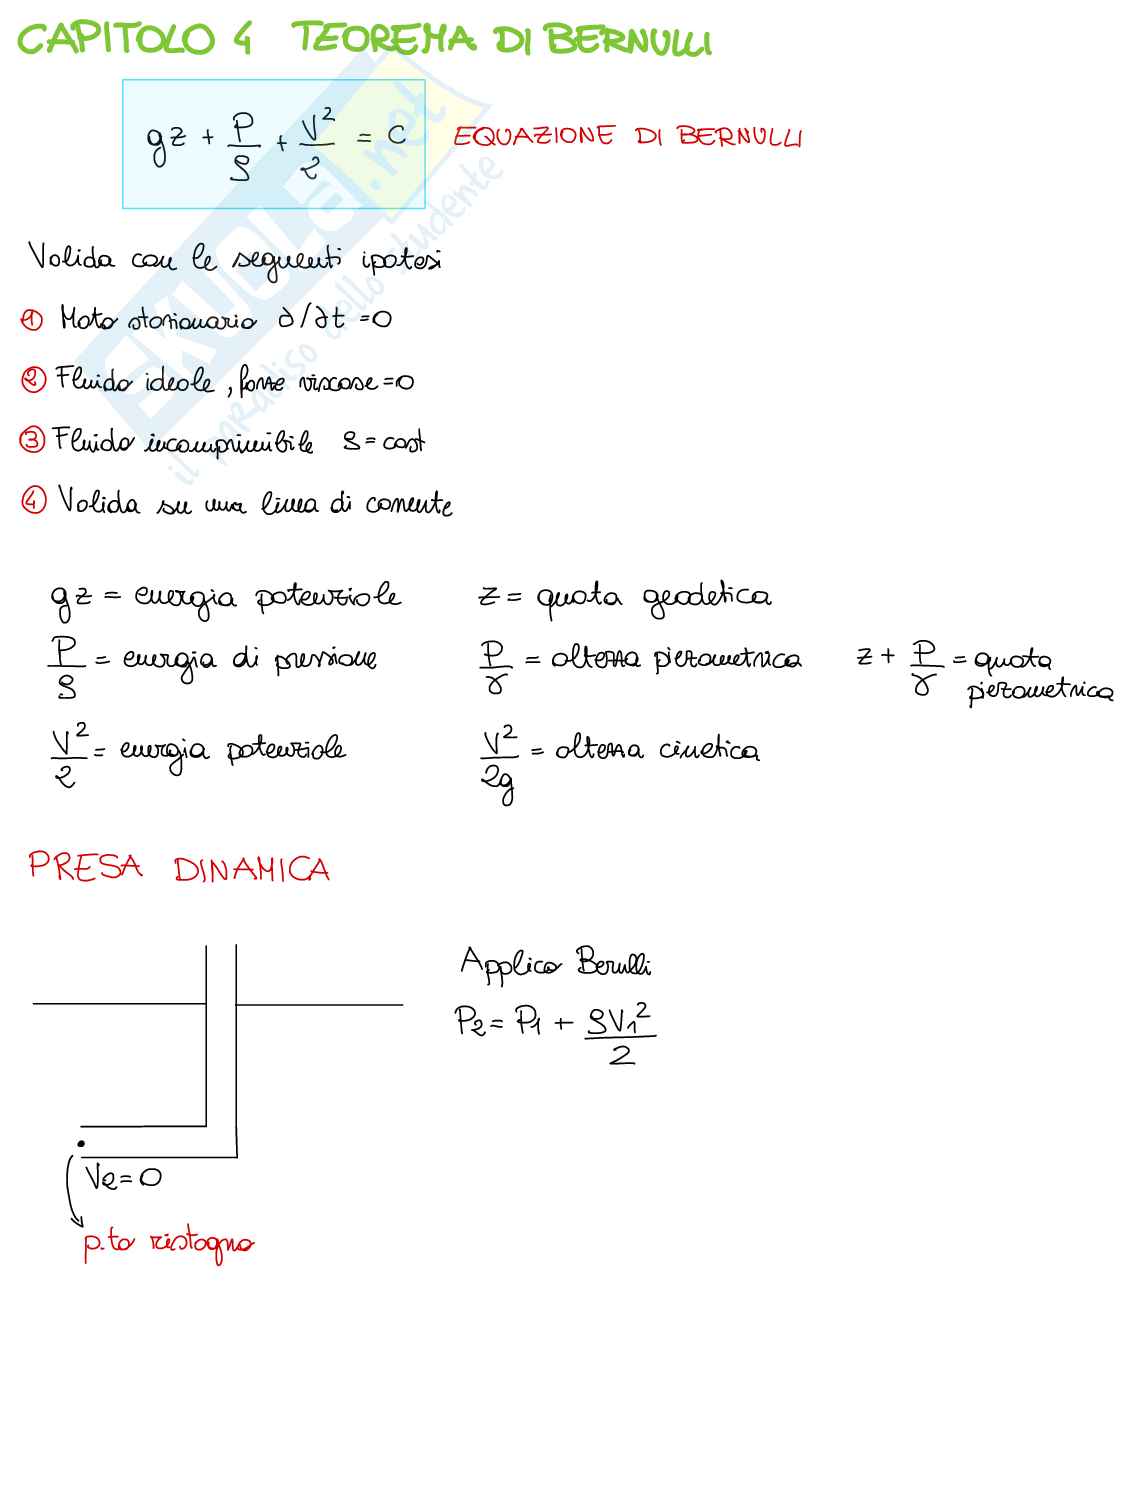 CAPITOLO 4 TEOREMA DI BERNULLI
gz + P/ρ + V²/2 = C EQUAZIONE DI BERNULLI
Valida con le seguenti ipotesi
① Moto stazionario ∂/∂t = 0
② Fluido ideale, forze viscose = 0
③ Fluido incomprimibile ρ = cost
④ Valida su una linea di corrente
gz = energia potenziale z = quota geodetica
P/ρ = energia di pressione P/γ = altezza piezometrica z + P/γ = quota piezometrica
V²/2 = energia potenziale V²/2g = altezza cinetica
PRESA DINAMICA
Applico Berulli
P₂ = P₁ + ρV₁²/2
V₂ = 0
p.to ristagno
SKUOLA.net
il paradiso dello studente